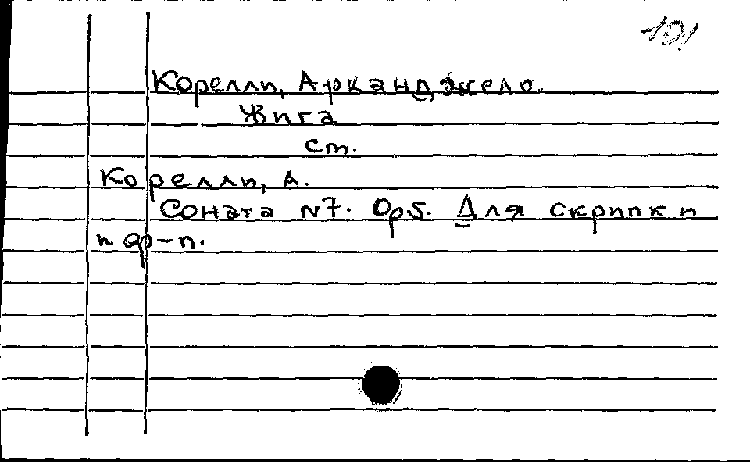 Корелли, Арканджело.
Жига
см.
Корелли, А.
Соната N7. Op.5. Для скрипки
и ф-п.